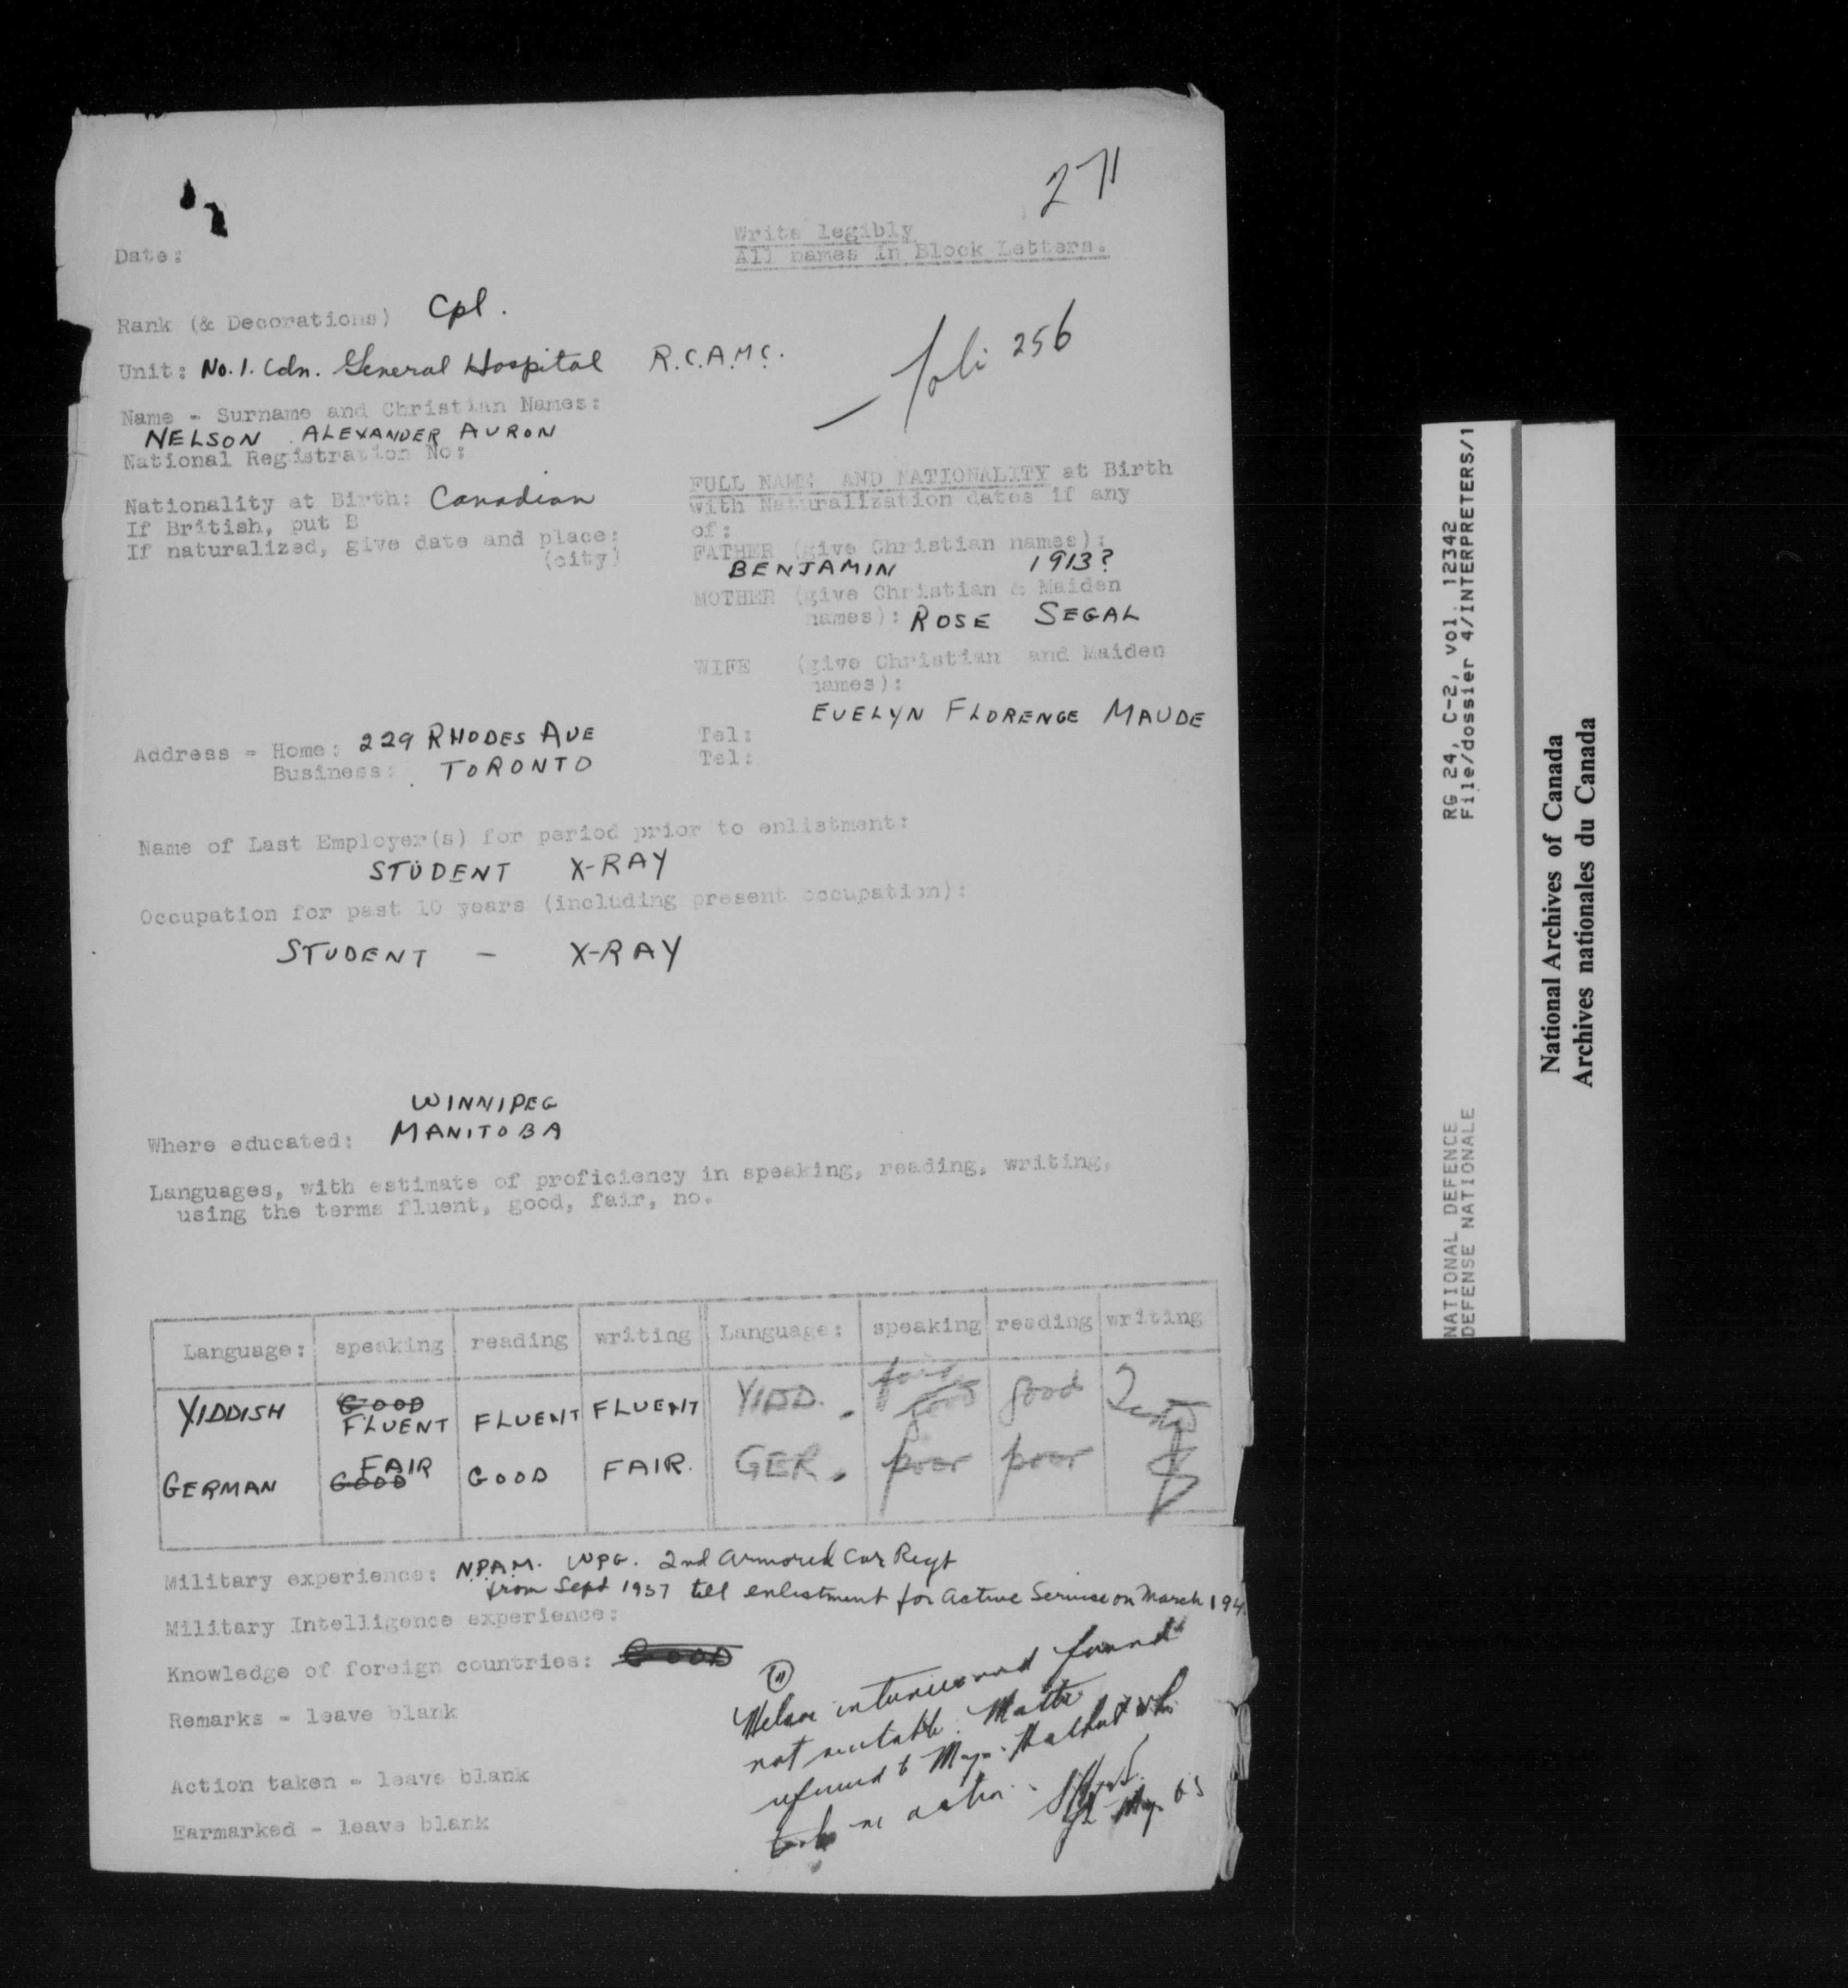 271
Write legibly
All names in Block Letters.
Date:
Rank (& Decorations) Cpl.
Unit: No. 1. Cdn. General Hospital R.C.A.M.C.
256
Name - Surname and Christian Names:
NELSON ALEXANDER AURON
National Registration No:
Nationality at Birth: Canadian
If British, put B
If naturalized, give date and place:
(city)
FULL NAME AND NATIONALITY at Birth
with Naturalization dates if any
of:
FATHER (give Christian names):
BENJAMIN 1913?
MOTHER (give Christian & Maiden
names): ROSE SEGAL
WIFE (give Christian and Maiden
names):
EVELYN FLORENGE MAUDE
Address - Home: 229 RHODES AVE Tel:
Business: TORONTO Tel:
Name of Last Employer(s) for period prior to enlistment:
STUDENT X-RAY
Occupation for past 10 years (including present occupation):
STUDENT - X-RAY
WINNIPEG
Where educated: MANITOBA
Languages, with estimate of proficiency in speaking, reading, writing,
using the terms fluent, good, fair, no.
Language: speaking reading writing Language: speaking reading writing
YIDDISH GOOD FLUENT FLUENT FLUENT YIDD. fair good good
GERMAN FAIR GOOD GOOD FAIR. GER. poor poor
Military experience: N.P.A.M. WPG. 2nd Armored Car Regt
from Sept 1937 till enlistment for Active Service on March 194
Military Intelligence experience:
Knowledge of foreign countries: GOOD
Remarks - leave blank
Action taken - leave blank
Earmarked - leave blank
Nelson interviewed found
not suitable. Matter
referred to Major who
took no action.
RG 24, C-2, vol. 12342
File/dossier 4/INTERPRETERS/1
NATIONAL DEFENCE
DEFENSE NATIONALE
National Archives of Canada
Archives nationales du Canada